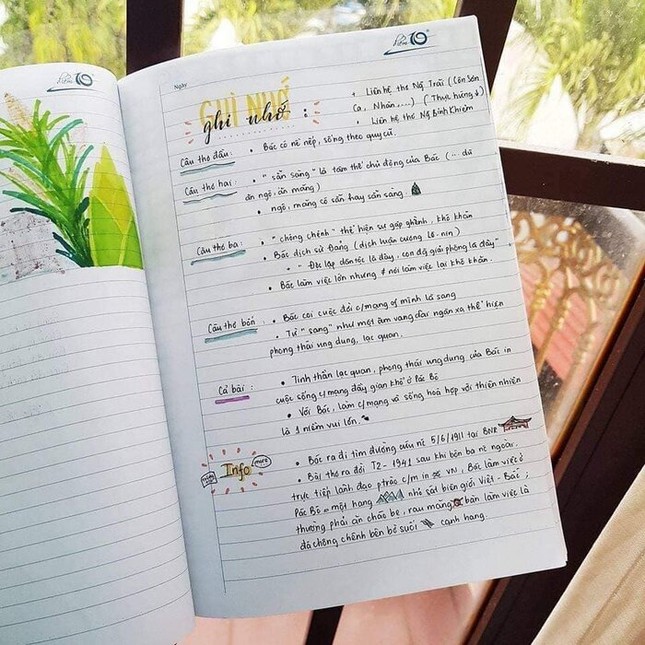 điểm 10
điểm 10
Ngày
GHI NHỚ
ghi nhớ :
+ Liên hệ thơ Ng Trãi (Côn Sơn
Ca, Nhàn,...) (Thực hứng)
• Liên hệ thơ Ng Bỉnh Khiêm
Câu thơ đầu : • Bác có nề nếp, sống theo quy củ.
Câu thơ hai : • "sẵn sàng" là tâm thế chủ động của Bác (... dù
ăn ngô, ăn măng)
• ngô, măng có sẵn hay sẵn sàng
Câu thơ ba : • "chông chênh" thể hiện sự gập ghềnh, khó khăn
• Bác dịch sử Đảng (dịch luận cương Lê-nin)
"Độc lập dân tộc là đây, con đg giải phóng là đây"
• Bác làm việc lớn nhưng nơi làm việc lại khó khăn.
Câu thơ bốn : • Bác coi cuộc đời c/mạng of mình là sang
• Từ "sang" như một âm vang đọc ngân xa thể hiện
phong thái ung dung, lạc quan.
Cả bài : • Tinh thần lạc quan, phong thái ung dung của Bác in
cuộc sống c/mạng đầy gian khổ ở Pác Bó
• Với Bác, làm c/mạng và sống hoà hợp với thiên nhiên
là 1 niềm vui lớn.
Info more • Bác ra đi tìm đường cứu nc 5/6/1911 tại BNR
• Bài thơ ra đời T2-1941 sau khi bôn ba nc ngoài,
trực tiếp lãnh đạo ptrào c/m in VN, Bác làm việc ở
Pác Bó = một hang nhỏ sát biên giới Việt - Bắc ;
thường phải ăn cháo bẹ, rau măng bàn làm việc là
đá chông chênh bên bờ suối cạnh hang.